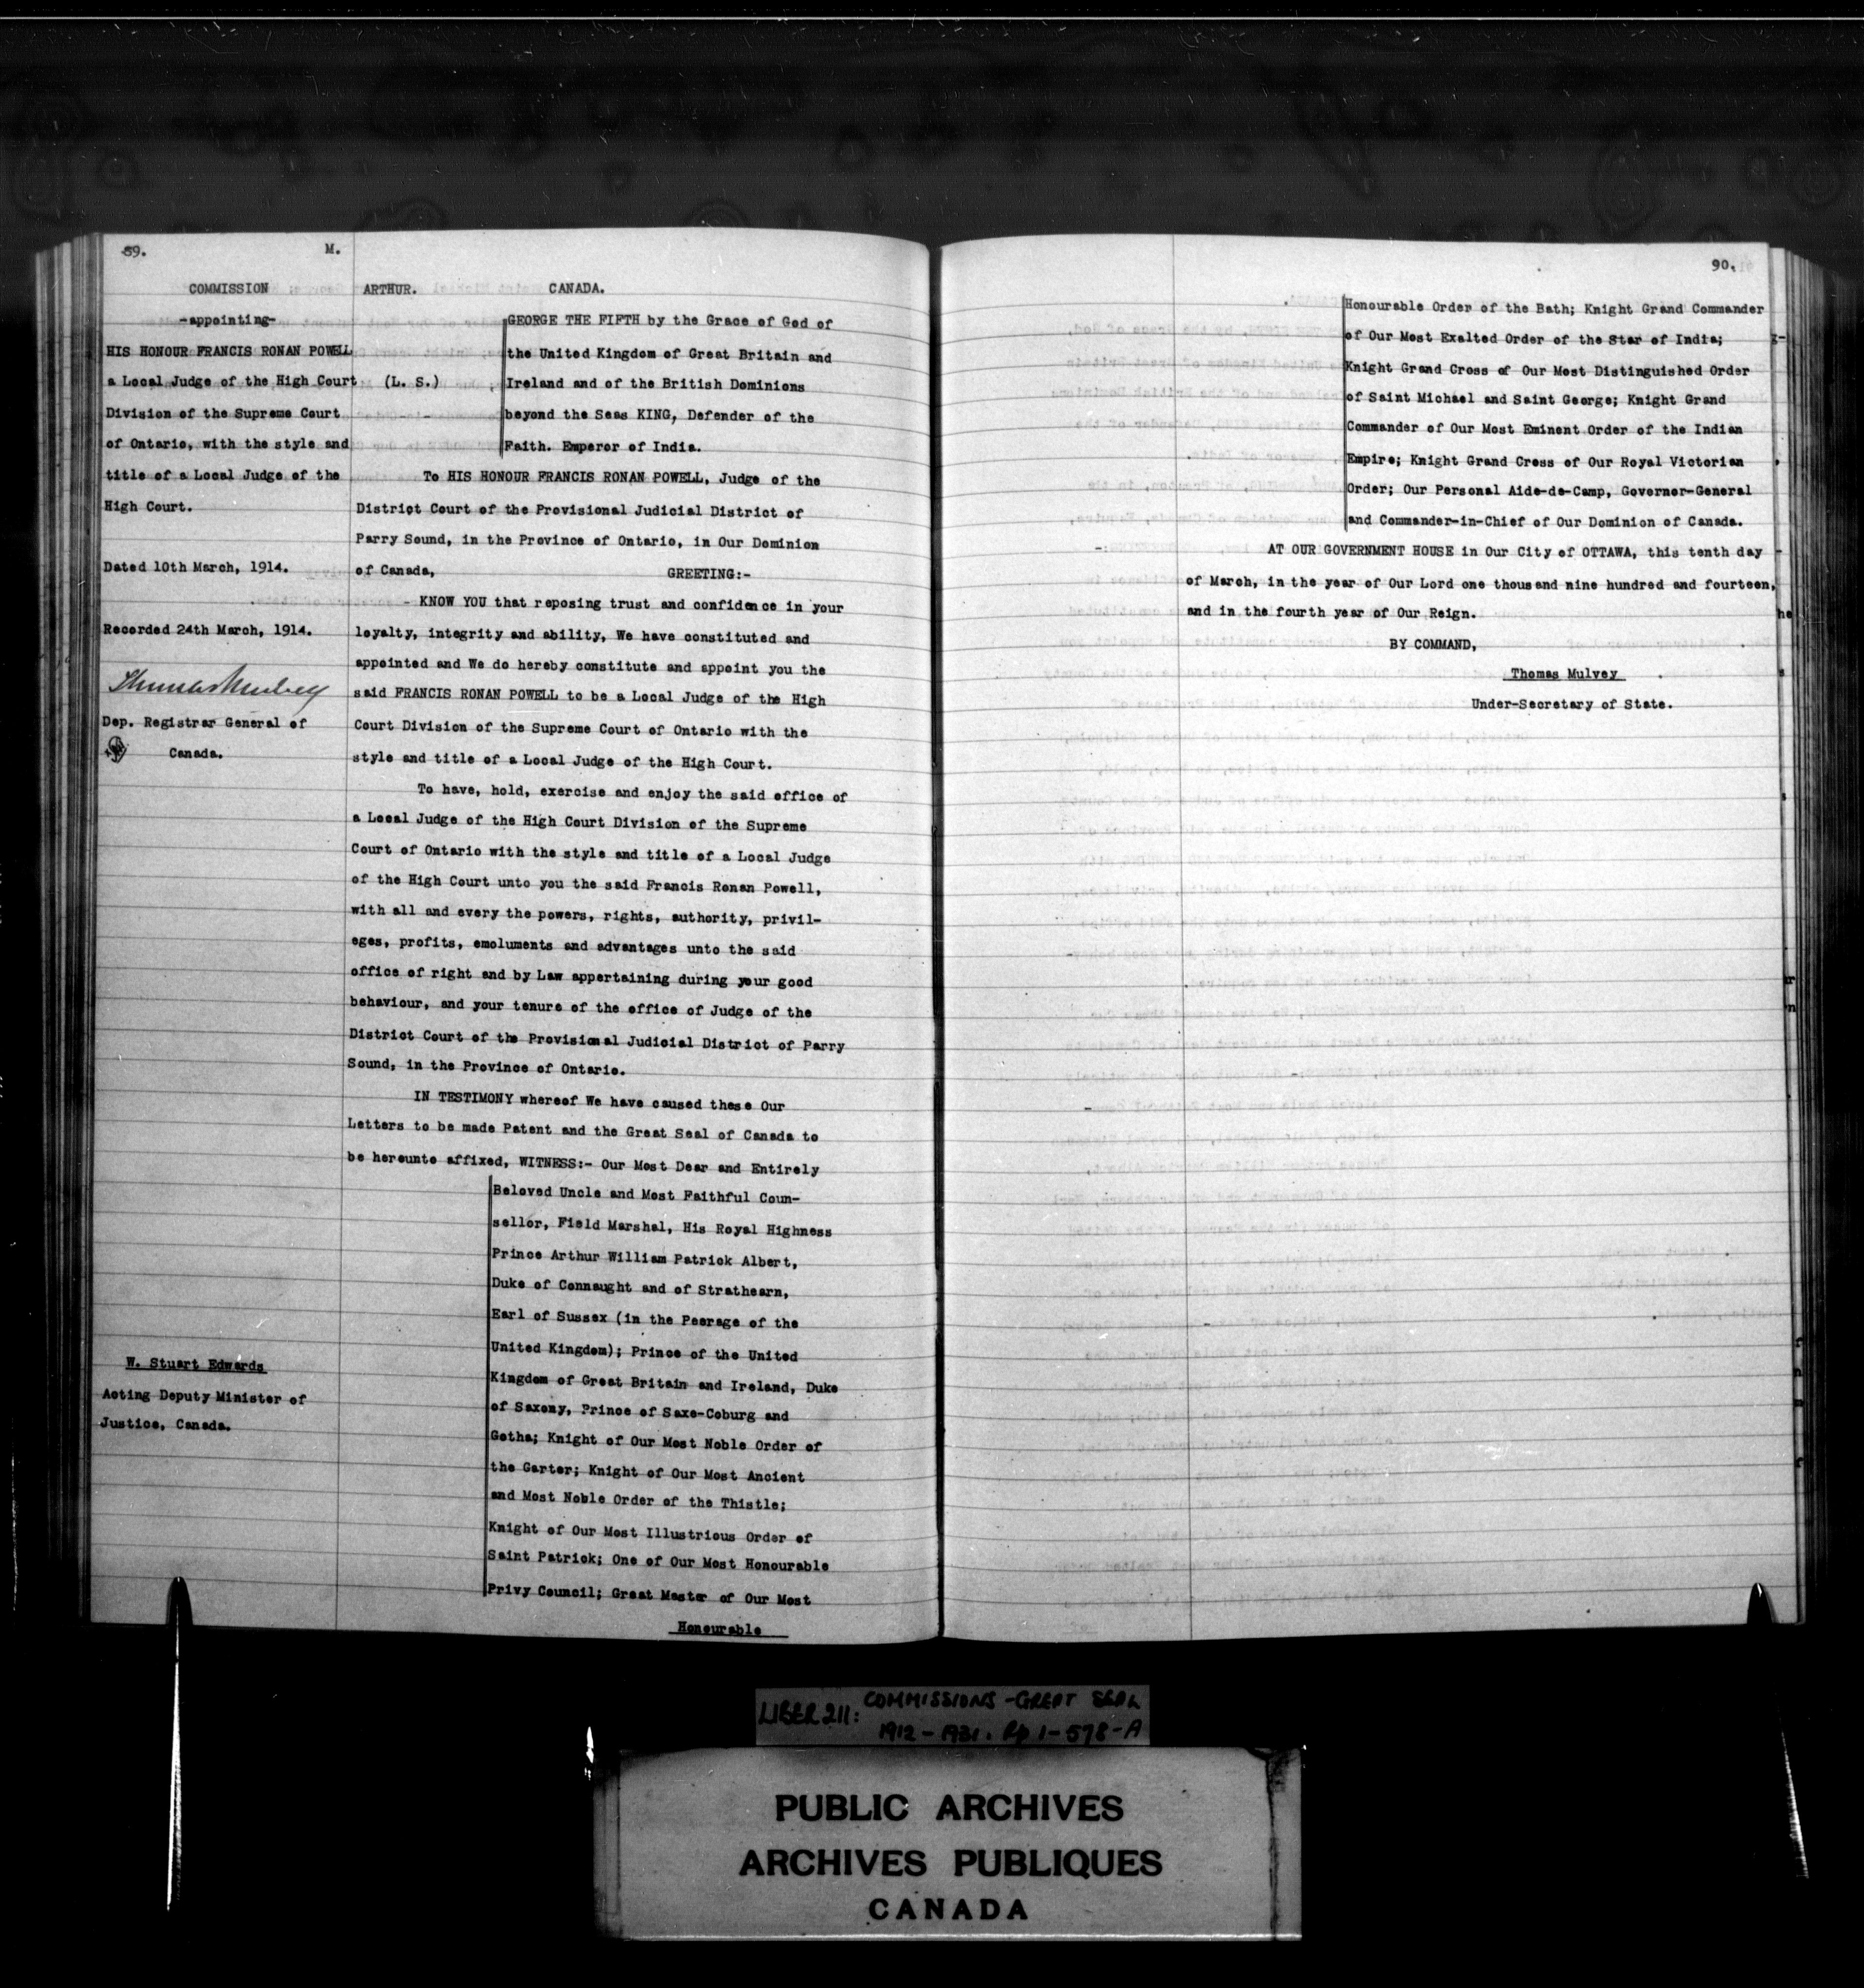 89.
M.
COMMISSION
-appointing-
HIS HONOUR FRANCIS RONAN POWELL
a Local Judge of the High Court
Division of the Supreme Court
of Ontario, with the style and
title of a Local Judge of the
High Court.
Dated 10th March, 1914.
Recorded 24th March, 1914.
Thomas Mulvey
Dep. Registrar General of
Canada.
W. Stuart Edwards
Acting Deputy Minister of
Justice, Canada.
ARTHUR. CANADA.
(L. S.)
GEORGE THE FIFTH by the Grace of God of
the United Kingdom of Great Britain and
Ireland and of the British Dominions
beyond the Seas KING, Defender of the
Faith. Emperor of India.
To HIS HONOUR FRANCIS RONAN POWELL, Judge of the
District Court of the Provisional Judicial District of
Parry Sound, in the Province of Ontario, in Our Dominion
of Canada, GREETING:-
KNOW YOU that reposing trust and confidence in your
loyalty, integrity and ability, We have constituted and
appointed and We do hereby constitute and appoint you the
said FRANCIS RONAN POWELL to be a Local Judge of the High
Court Division of the Supreme Court of Ontario with the
style and title of a Local Judge of the High Court.
To have, hold, exercise and enjoy the said office of
a Local Judge of the High Court Division of the Supreme
Court of Ontario with the style and title of a Local Judge
of the High Court unto you the said Francis Ronan Powell,
with all and every the powers, rights, authority, privil-
eges, profits, emoluments and advantages unto the said
office of right and by Law appertaining during your good
behaviour, and your tenure of the office of Judge of the
District Court of the Provisional Judicial District of Parry
Sound, in the Province of Ontario.
IN TESTIMONY whereof We have caused these Our
Letters to be made Patent and the Great Seal of Canada to
be hereunto affixed, WITNESS:- Our Most Dear and Entirely
Beloved Uncle and Most Faithful Coun-
sellor, Field Marshal, His Royal Highness
Prince Arthur William Patrick Albert,
Duke of Connaught and of Strathearn,
Earl of Sussex (in the Peerage of the
United Kingdom); Prince of the United
Kingdom of Great Britain and Ireland, Duke
of Saxony, Prince of Saxe-Coburg and
Gotha; Knight of Our Most Noble Order of
the Garter; Knight of Our Most Ancient
and Most Noble Order of the Thistle;
Knight of Our Most Illustrious Order of
Saint Patrick; One of Our Most Honourable
Privy Council; Great Master of Our Most
Honourable
90.
Honourable Order of the Bath; Knight Grand Commander
of Our Most Exalted Order of the Star of India;
Knight Grand Cross of Our Most Distinguished Order
of Saint Michael and Saint George; Knight Grand
Commander of Our Most Eminent Order of the Indian
Empire; Knight Grand Cross of Our Royal Victorian
Order; Our Personal Aide-de-Camp, Governor-General
and Commander-in-Chief of Our Dominion of Canada.
AT OUR GOVERNMENT HOUSE in Our City of OTTAWA, this tenth day
of March, in the year of Our Lord one thousand nine hundred and fourteen,
and in the fourth year of Our Reign.
BY COMMAND,
Thomas Mulvey
Under-Secretary of State.
LIBER 211: COMMISSIONS - GREAT SEAL
1912 - 1931. Pp 1-578-A
PUBLIC ARCHIVES
ARCHIVES PUBLIQUES
CANADA